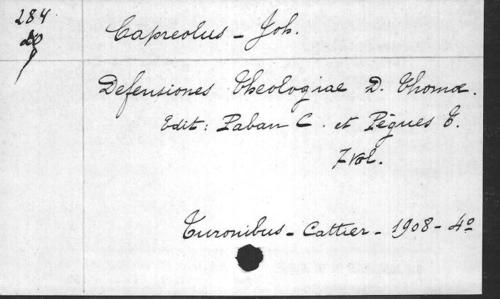 284
Capreolus - Joh.
Defensiones Theologiae D. Thomæ.
Edit: Paban C. et Pègues T.
7 vol.
Turonibus - Cattier - 1908 - 4º